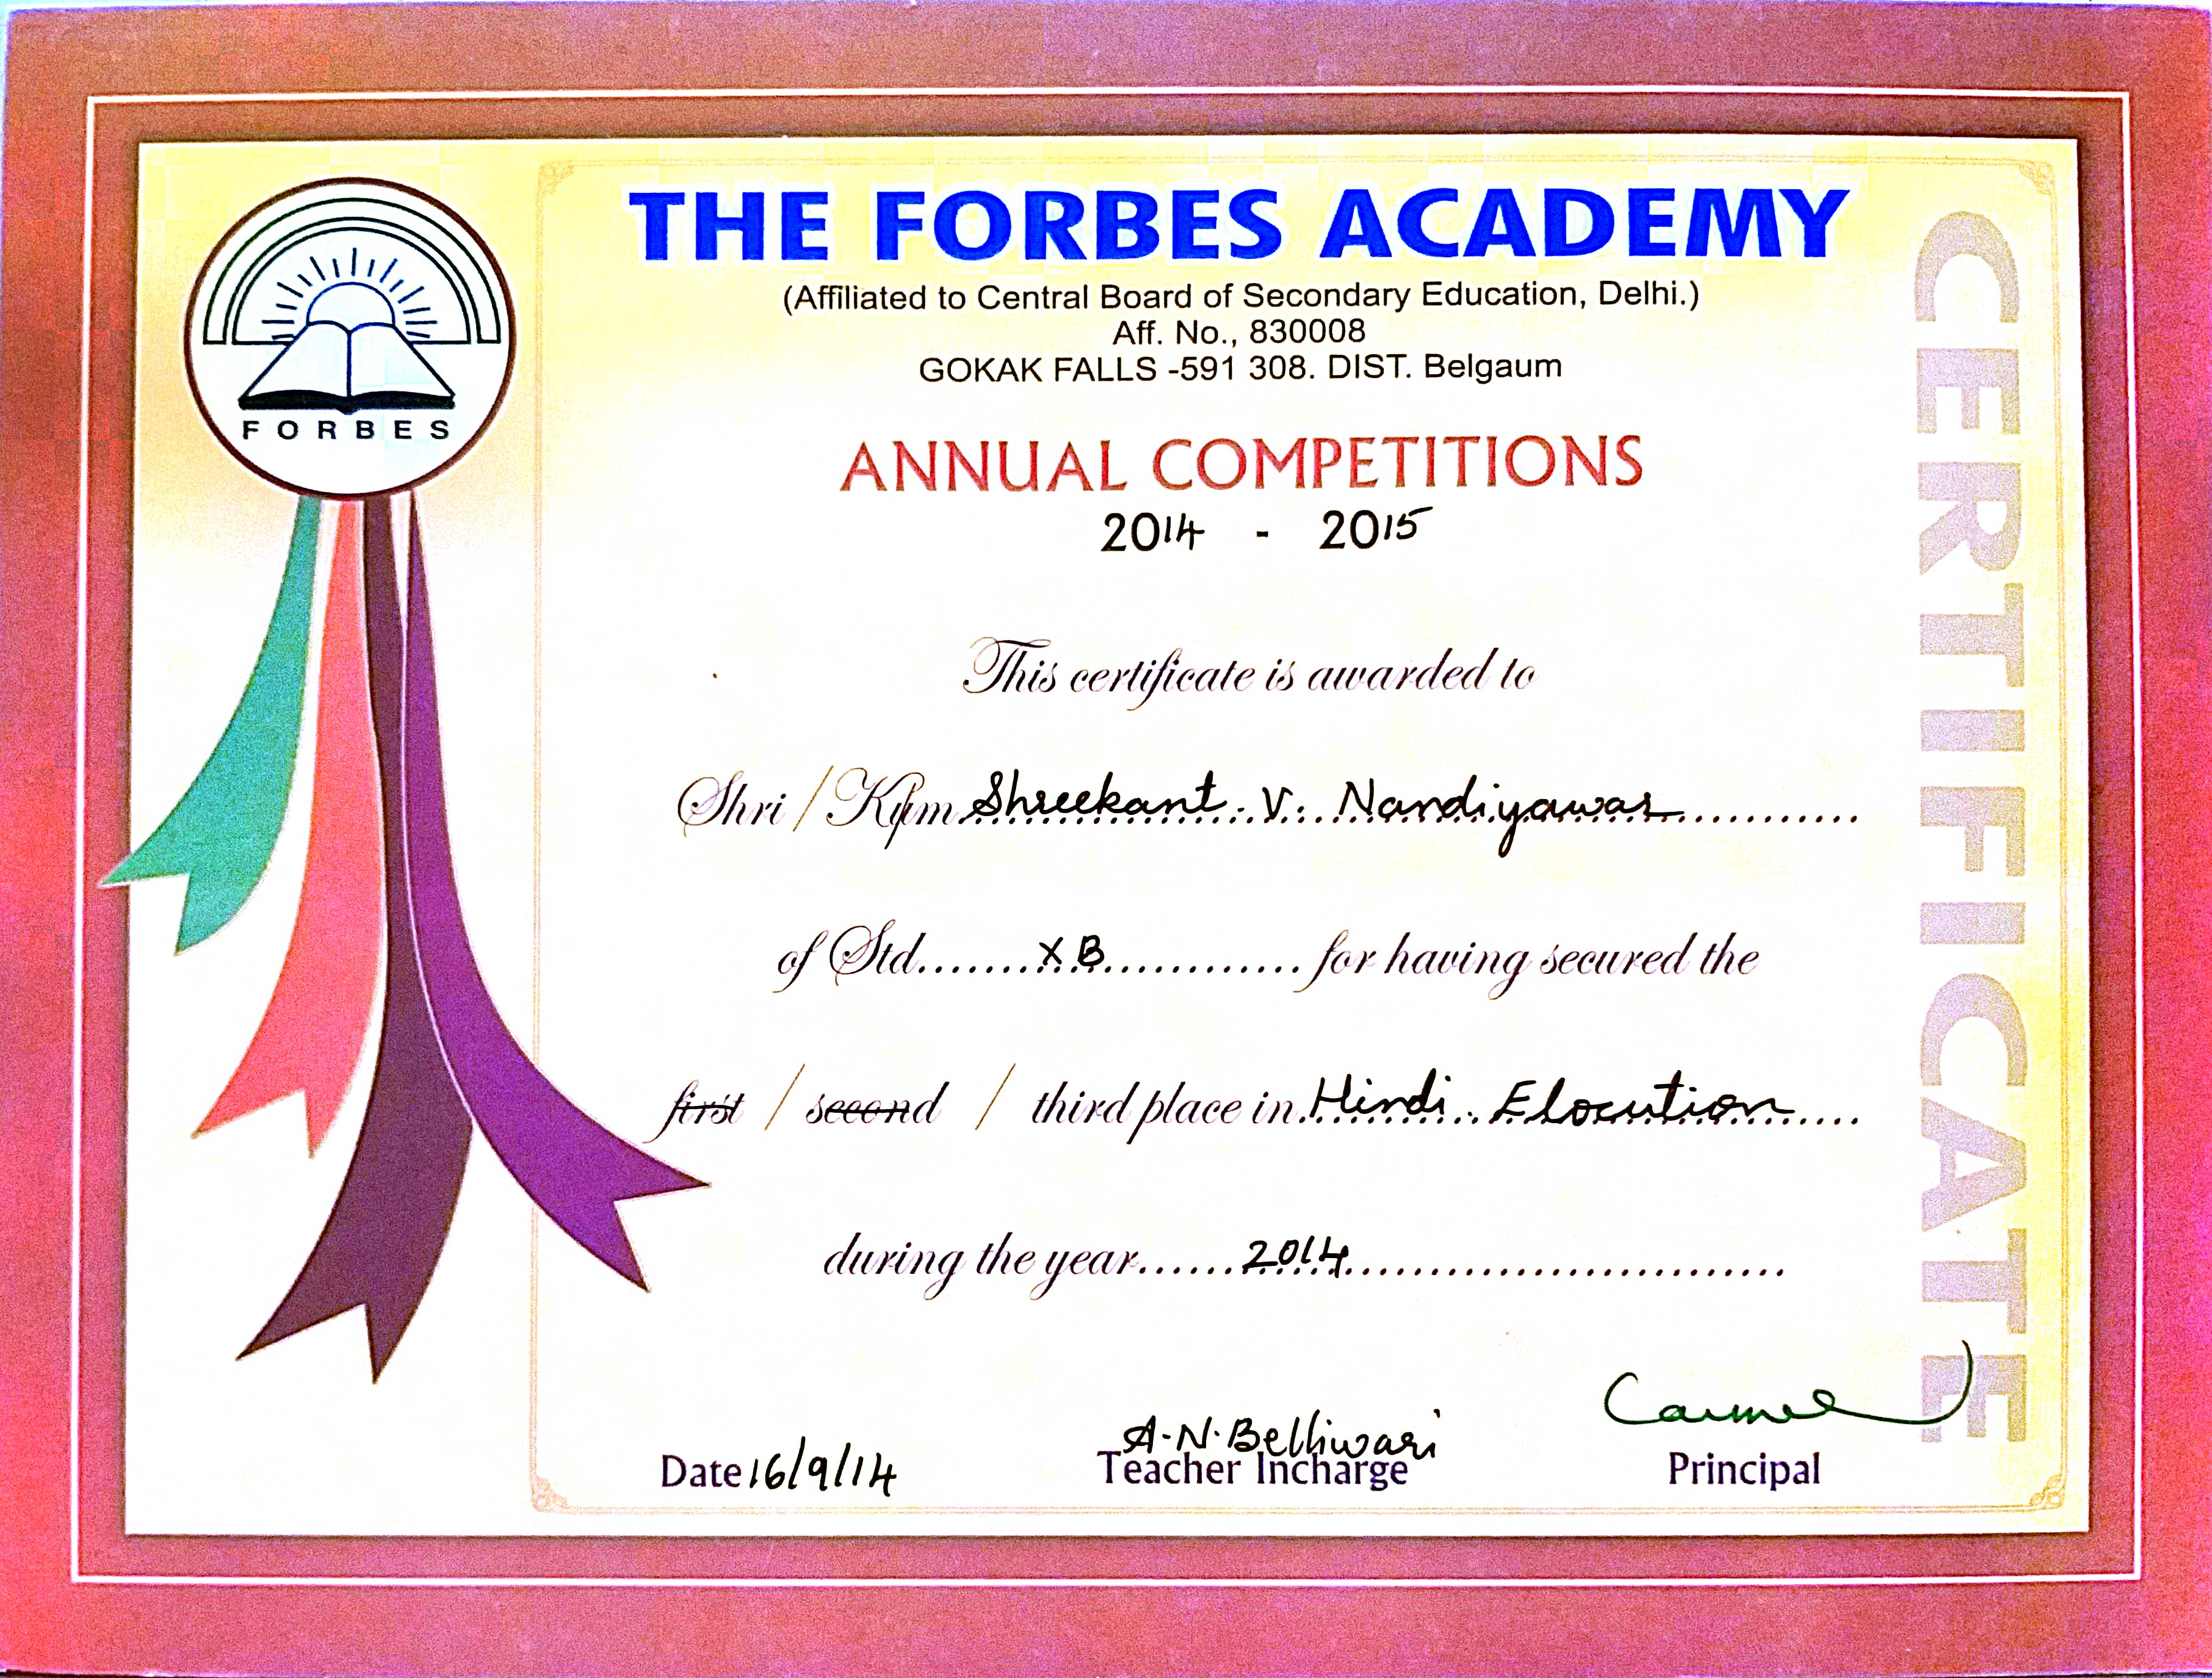 FORBES
THE FORBES ACADEMY
(Affiliated to Central Board of Secondary Education, Delhi.)
Aff. No., 830008
GOKAK FALLS -591 308. DIST. Belgaum
ANNUAL COMPETITIONS
2014 - 2015
This certificate is awarded to
Shri / Kum Shreekant. V. Nandiyawar
of Std. X B for having secured the
first / second / third place in Hindi Elocution
during the year 2014
A.N.Belliwari
Date 16/9/14 Teacher Incharge Principal
CERTIFICATE